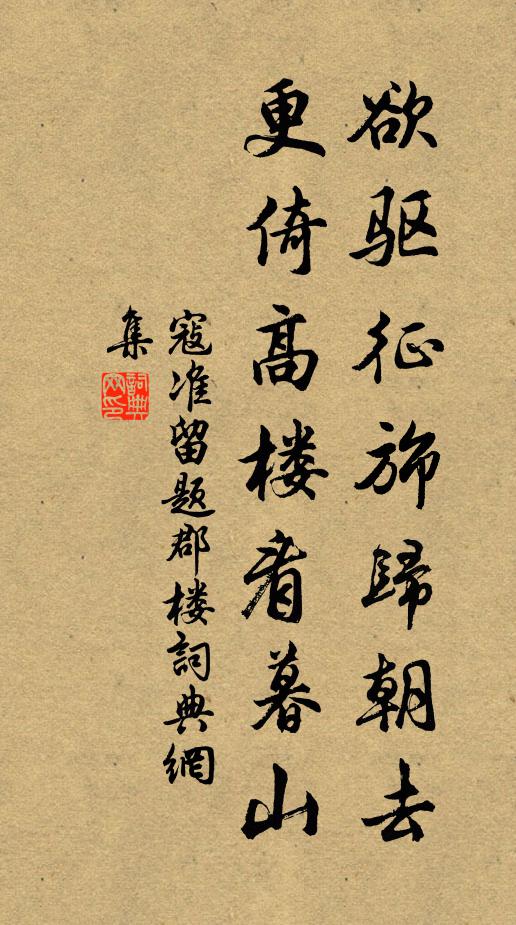 欲驱征旆歸朝去
更倚高楼看暮山
寇准留题郡楼詞典網
集
詞典网印